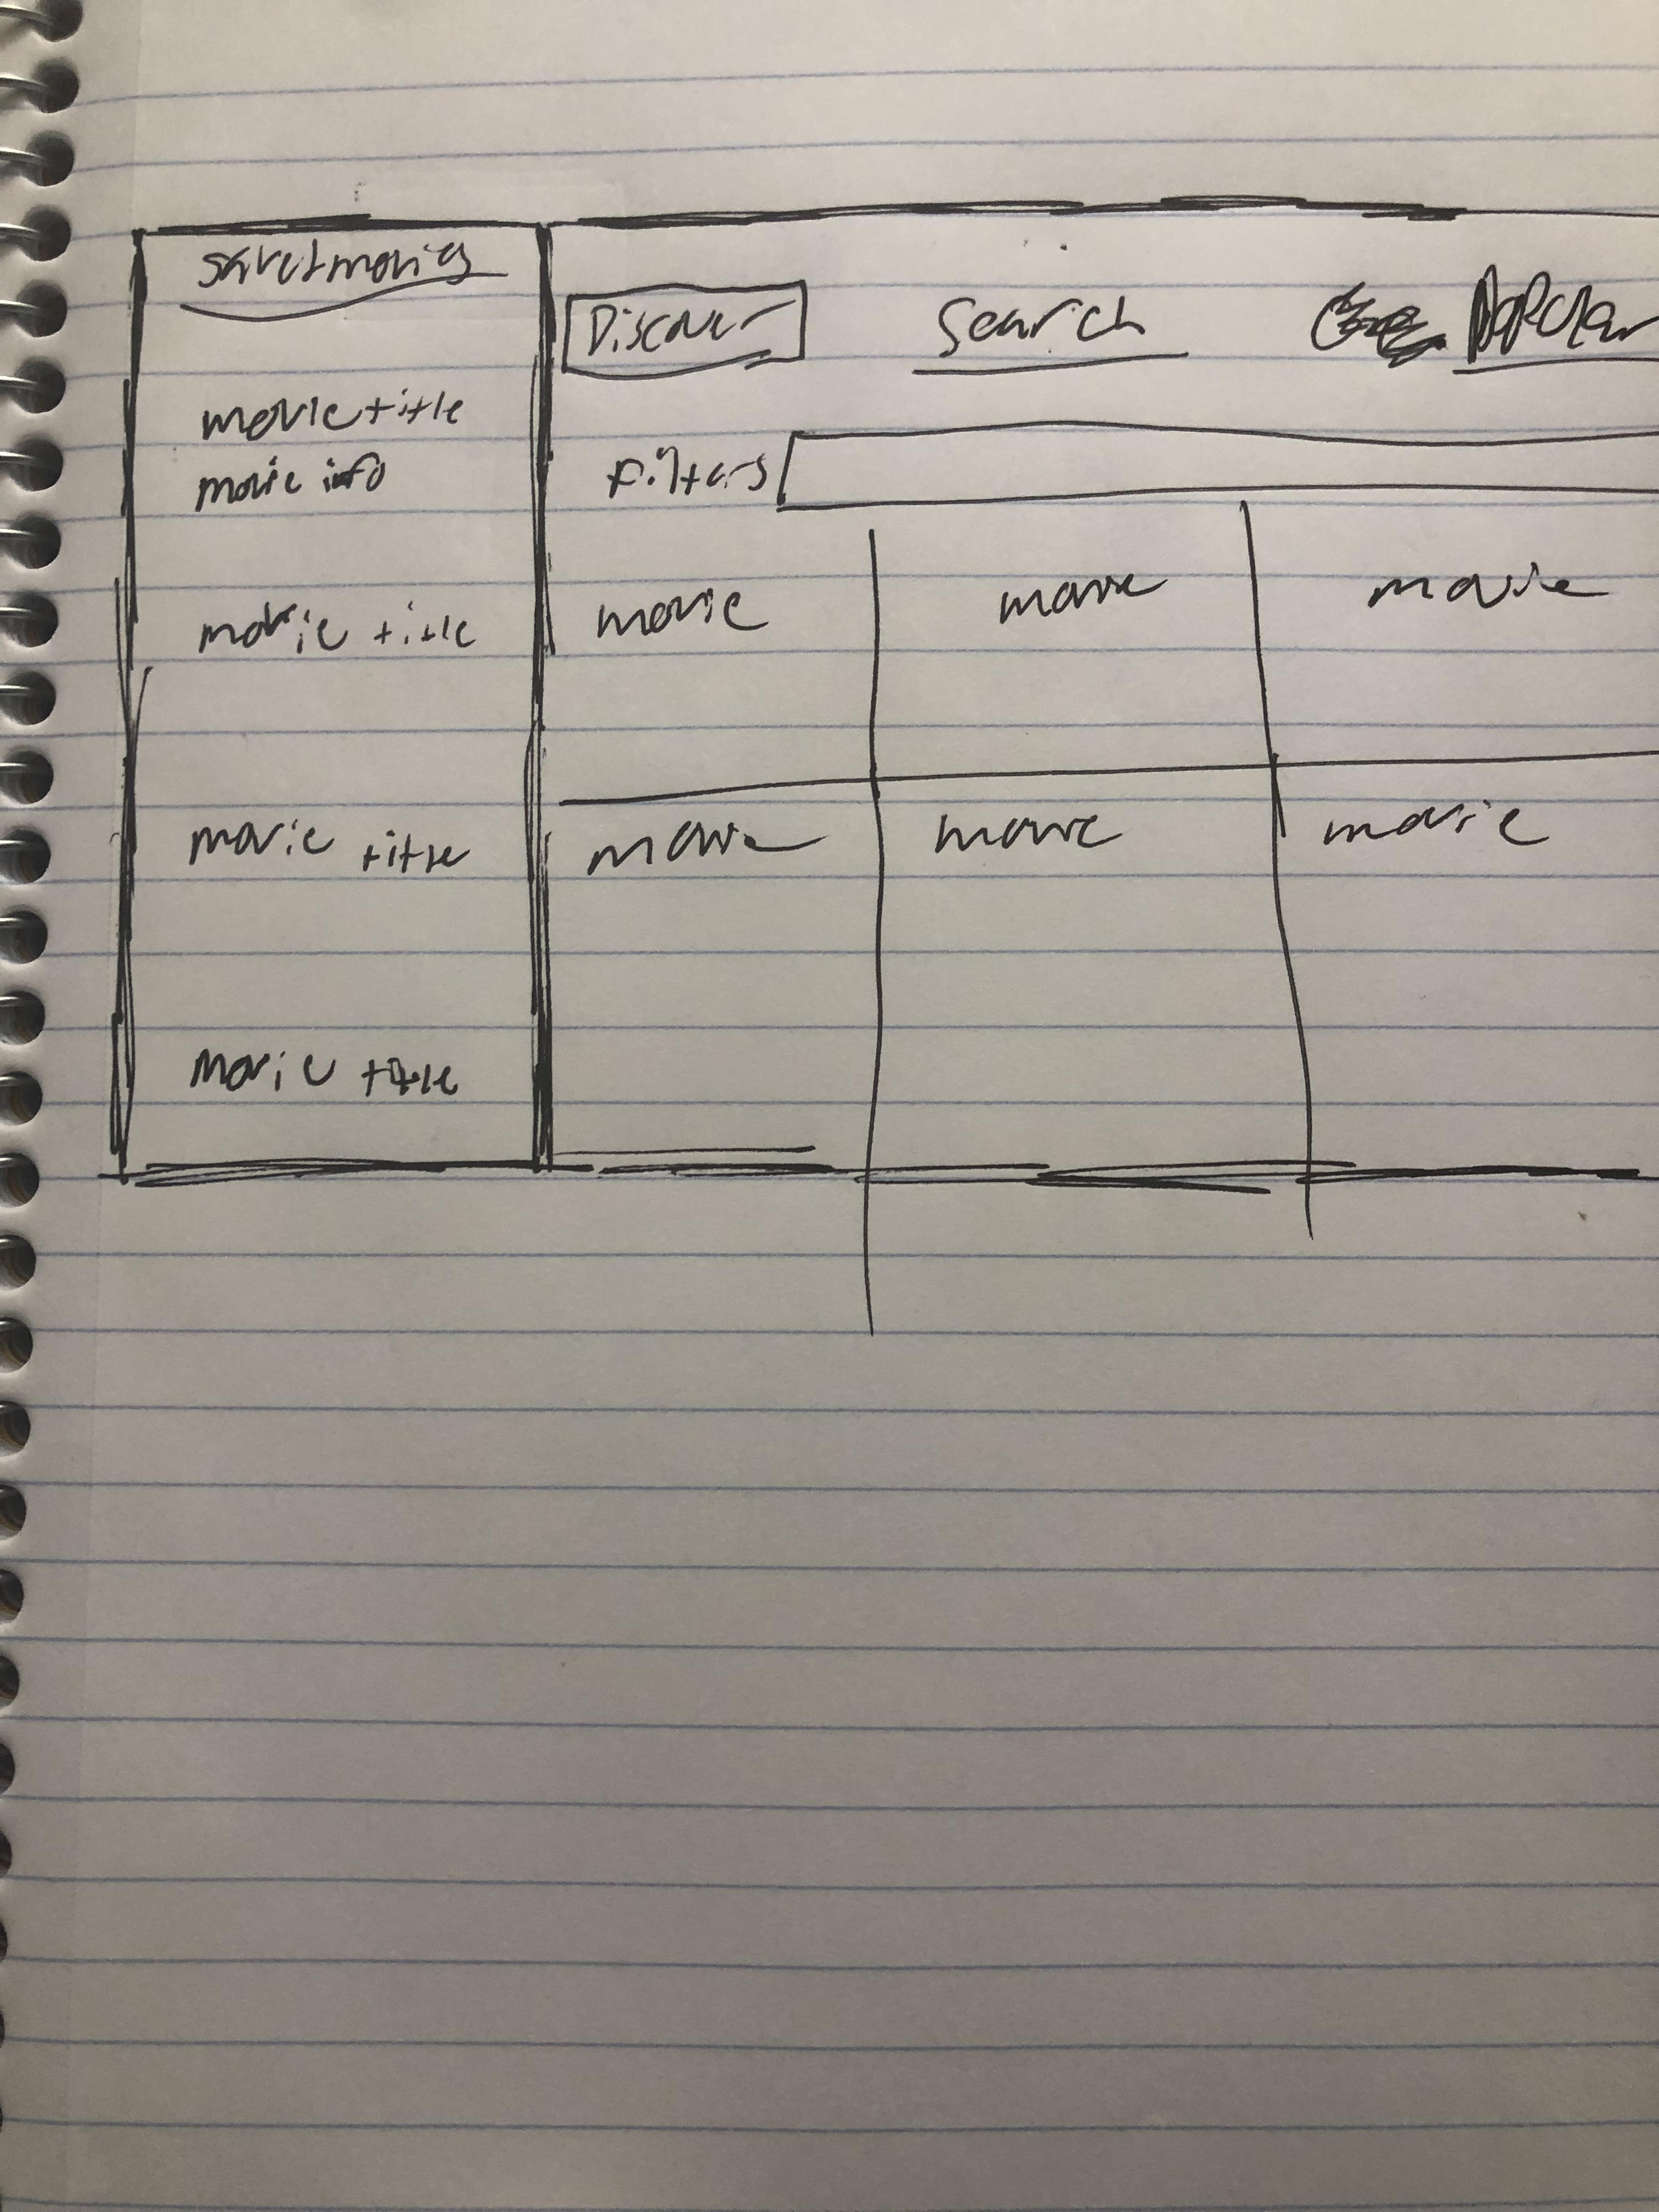 saved movies
movie title
movie info
movie title
movie title
movie title
Discover Search Popular
Filters
movie movie movie
movie movie movie